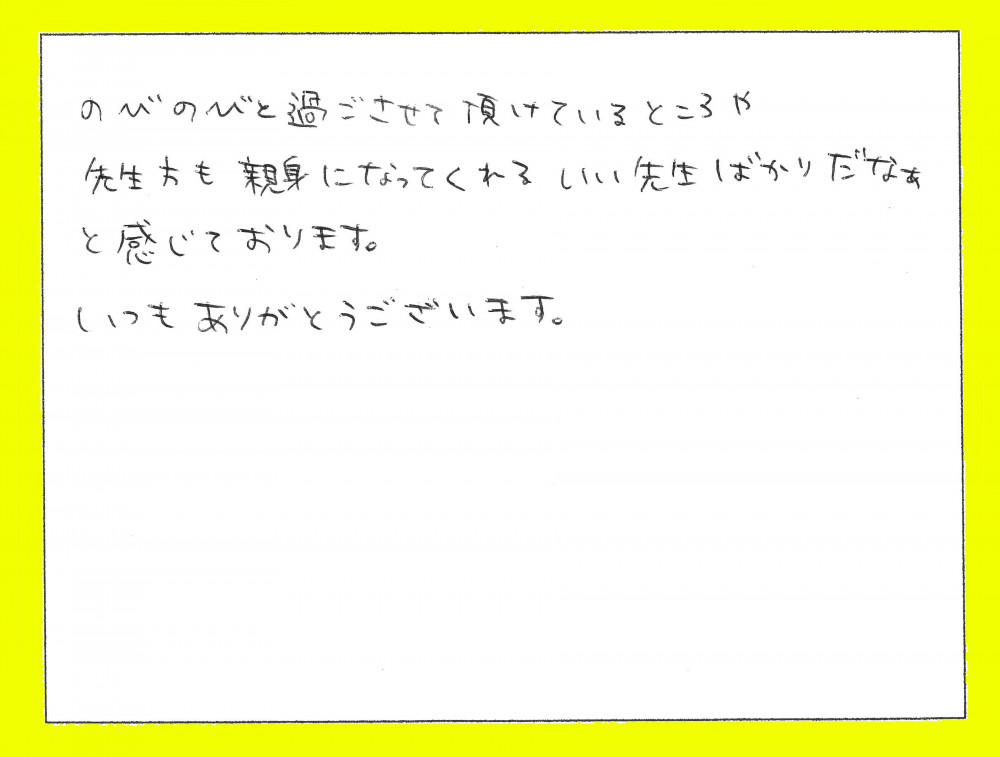 のびのびと過ごさせて頂けているところや
先生方も親身になってくれるいい先生ばかりだなぁ
と感じております。
いつもありがとうございます。